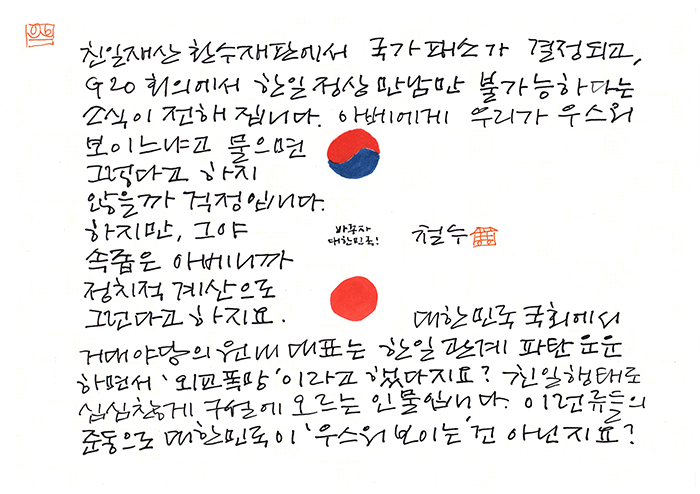 친일재산 환수재판에서 국가패소가 결정되고,
G20 회의에서 한일정상 만남만 불가능하다는
소식이 전해 집니다. 아베에게 우리가 우스워
보이느냐고 물으면
그렇다고 하지
않을까 걱정입니다.
하지만, 그야
속좁은 아베니까
정치적 계산으로
그런다고 하지요.
바꾸자
대한민국!
철수
대한민국 국회에서
거대야당의 원내대표는 한일관계 파탄 운운
하면서 '외교폭망'이라고 했다지요? 친일행태로
심심찮게 구설에 오르는 인물입니다. 이런류들의
준동으로 대한민국이 '우스워 보이는'건 아닌지요?